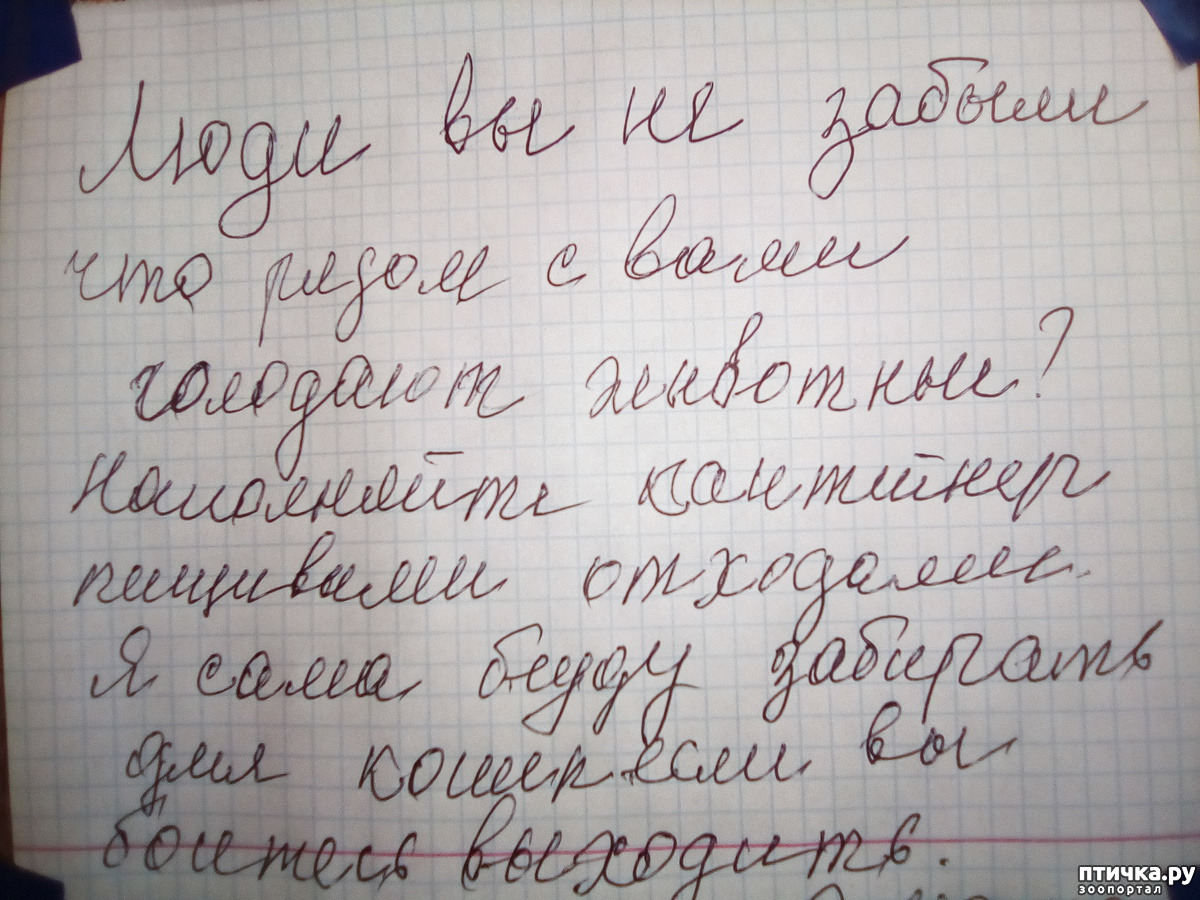 Люди вы не забыли
что рядом с вами
голодают животные?
Наполняйте кантейнер
пищивами отходами.
Я сама буду забирать
для кошек если вы
боитесь выходить.
птичка.ру
зоопортал